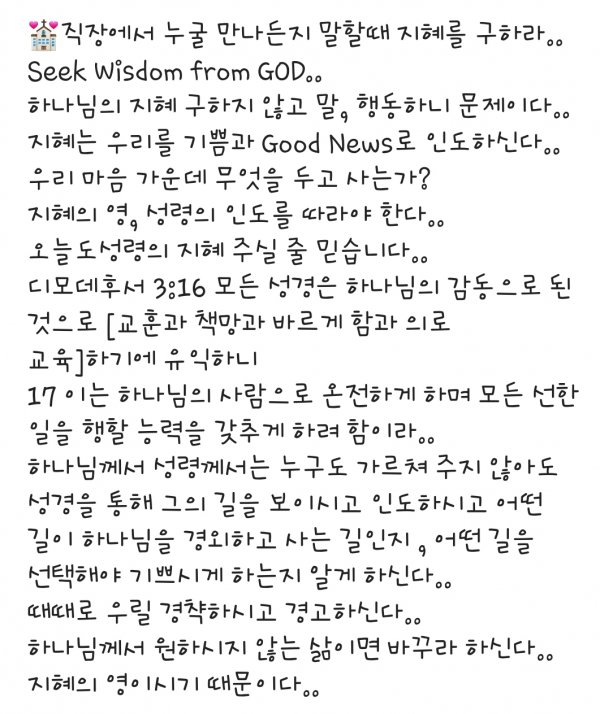 💒직장에서 누굴 만나든지 말할때 지혜를 구하라..
Seek Wisdom from GOD..
하나님의 지혜 구하지 않고 말, 행동하니 문제이다..
지혜는 우리를 기쁨과 Good News로 인도하신다..
우리 마음 가운데 무엇을 두고 사는가?
지혜의 영, 성령의 인도를 따라야 한다..
오늘도성령의 지혜 주실 줄 믿습니다..
디모데후서 3:16 모든 성경은 하나님의 감동으로 된
것으로 [교훈과 책망과 바르게 함과 의로
교육]하기에 유익하니
17 이는 하나님의 사람으로 온전하게 하며 모든 선한
일을 행할 능력을 갖추게 하려 함이라..
하나님께서 성령께서는 누구도 가르쳐 주지 않아도
성경을 통해 그의 길을 보이시고 인도하시고 어떤
길이 하나님을 경외하고 사는 길인지 , 어떤 길을
선택해야 기쁘시게 하는지 알게 하신다..
때때로 우릴 경챡하시고 경고하신다..
하나님께서 원하시지 않는 삶이면 바꾸라 하신다..
지혜의 영이시기 때문이다..